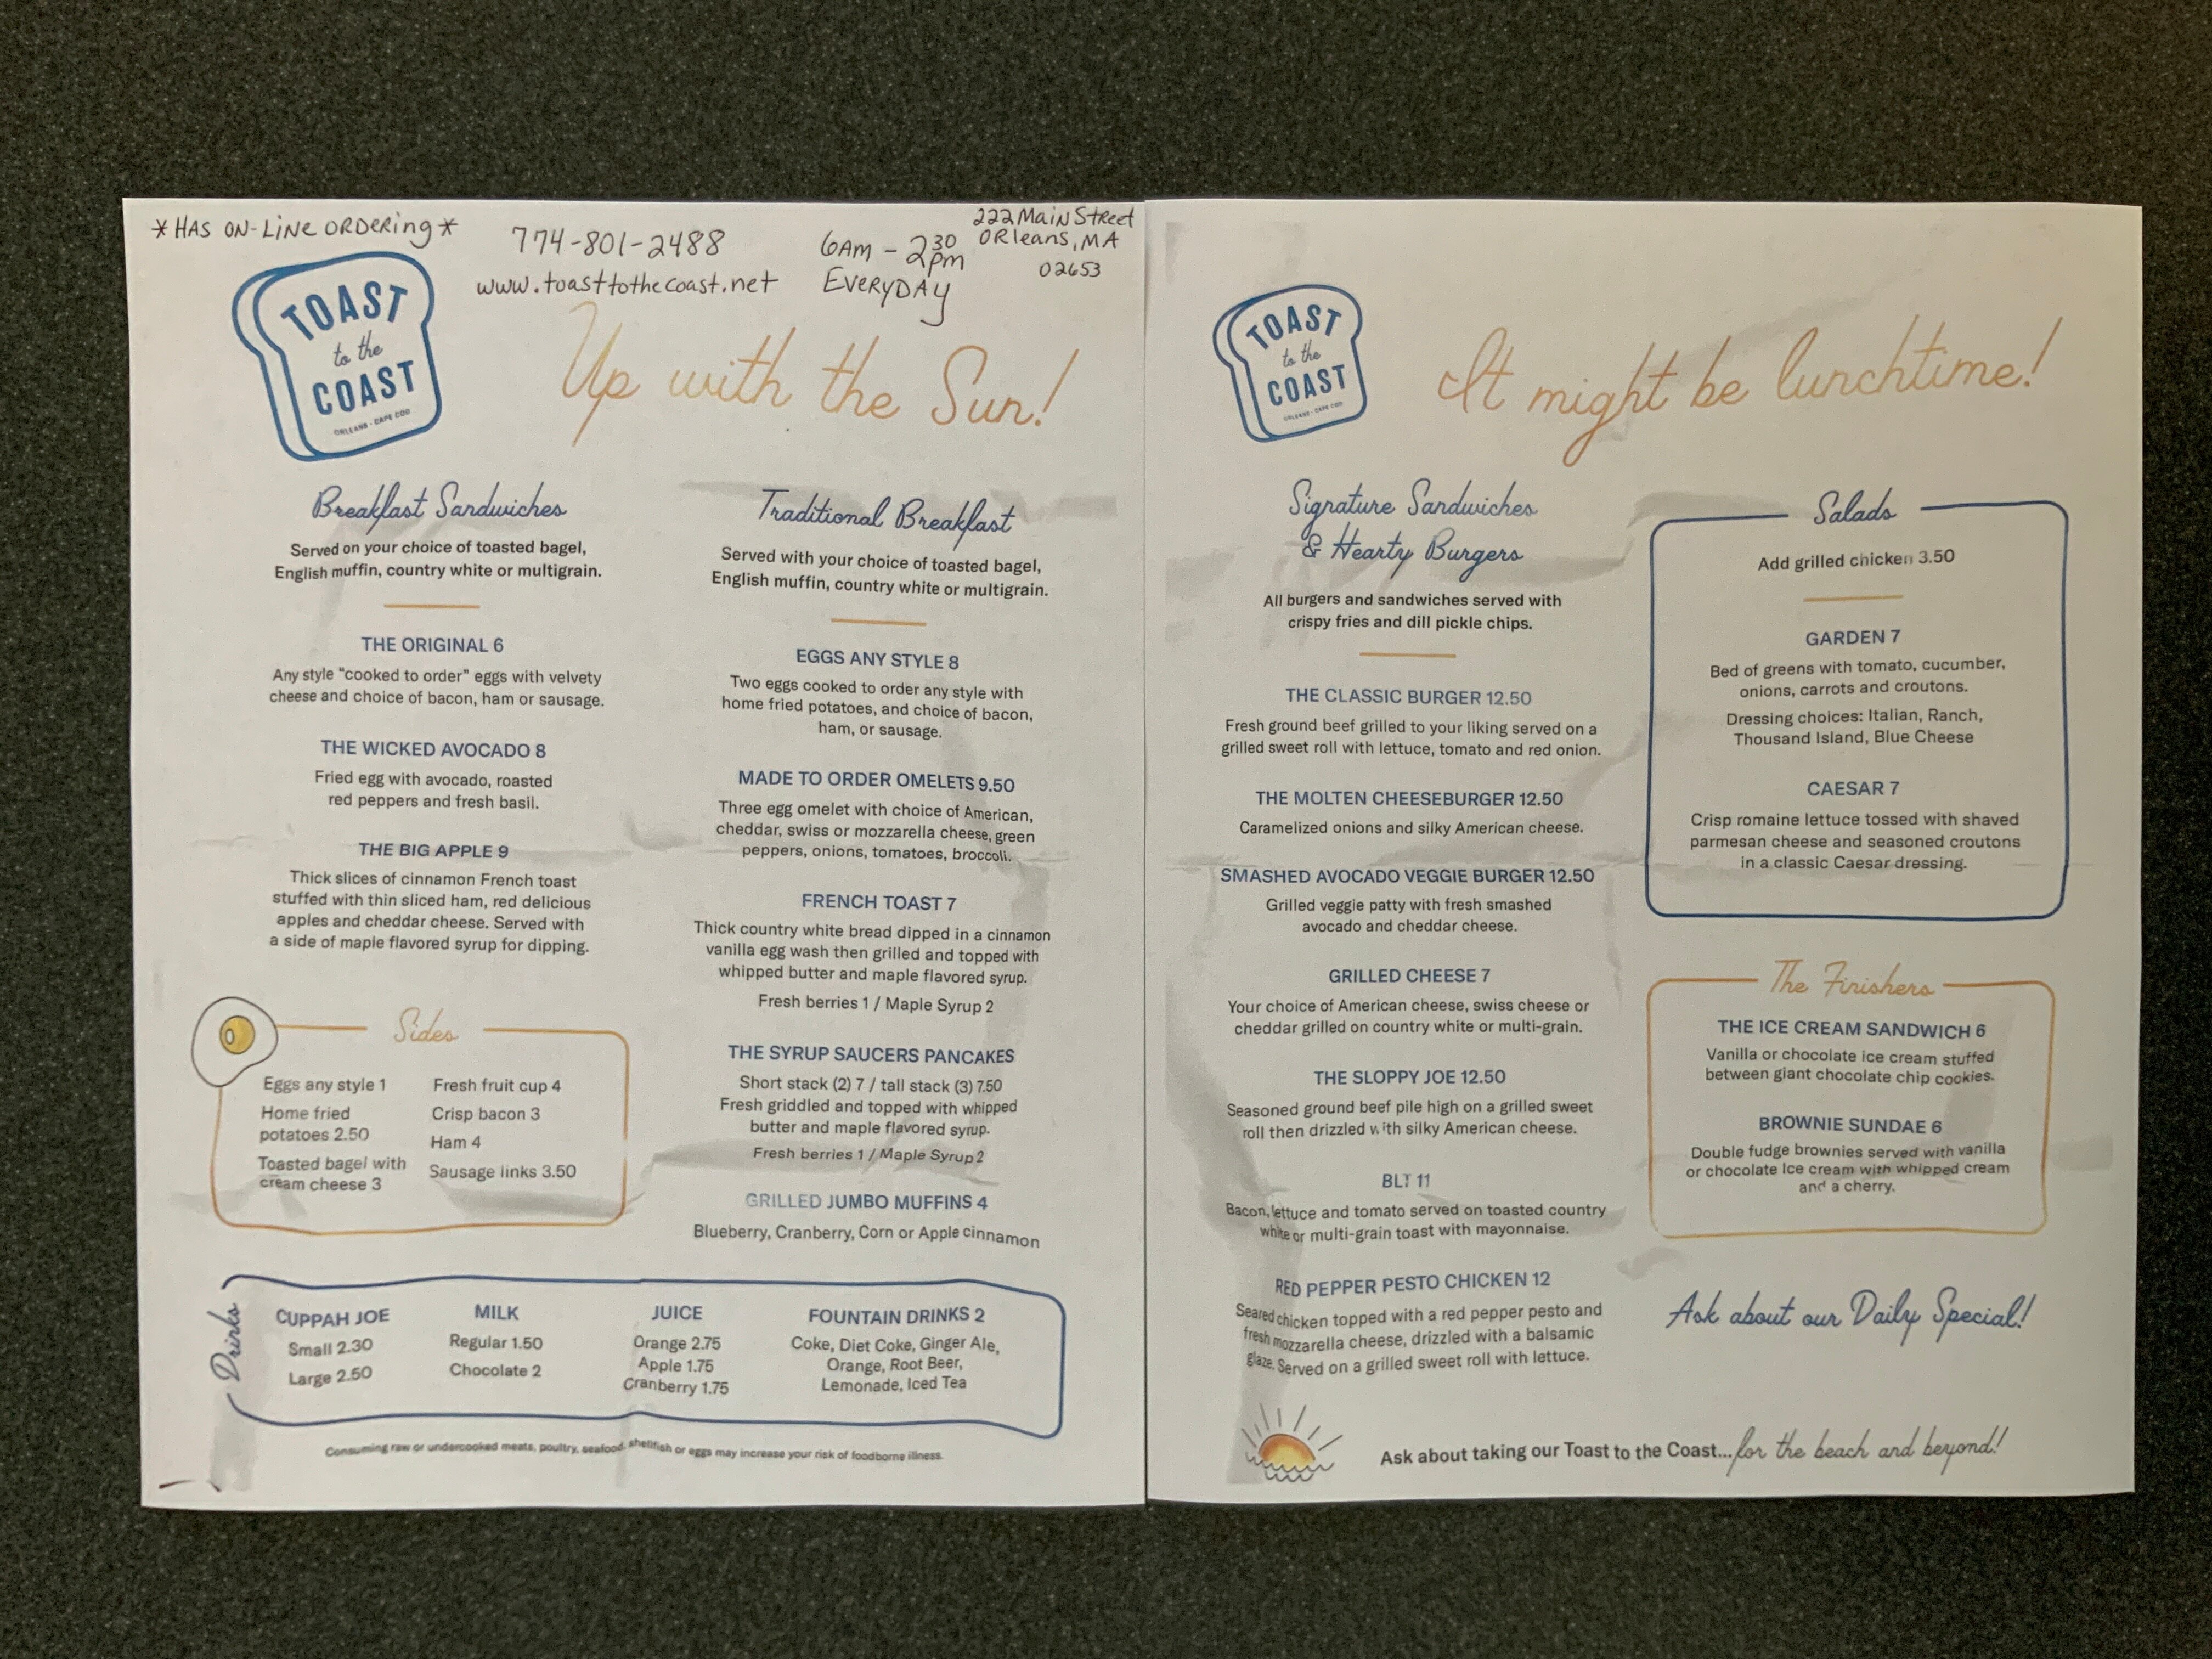 *HAS ON-LINE ORDERING*
774-801-2488
www.toasttothecoast.net
6AM - 2:30
PM
EVERYDAY
222 Main Street
ORleans, MA
02653
TOAST
to the
COAST
ORLEANS - CAPE COD
Up with the Sun!
Breakfast Sandwiches
Served on your choice of toasted bagel,
English muffin, country white or multigrain.
THE ORIGINAL 6
Any style "cooked to order" eggs with velvety
cheese and choice of bacon, ham or sausage.
THE WICKED AVOCADO 8
Fried egg with avocado, roasted
red peppers and fresh basil.
THE BIG APPLE 9
Thick slices of cinnamon French toast
stuffed with thin sliced ham, red delicious
apples and cheddar cheese. Served with
a side of maple flavored syrup for dipping.
Sides
Eggs any style 1
Home fried
potatoes 2.50
Toasted bagel with
cream cheese 3
Fresh fruit cup 4
Crisp bacon 3
Ham 4
Sausage links 3.50
Traditional Breakfast
Served with your choice of toasted bagel,
English muffin, country white or multigrain.
EGGS ANY STYLE 8
Two eggs cooked to order any style with
home fried potatoes, and choice of bacon,
ham, or sausage.
MADE TO ORDER OMELETS 9.50
Three egg omelet with choice of American,
cheddar, swiss or mozzarella cheese, green
peppers, onions, tomatoes, broccoli.
FRENCH TOAST 7
Thick country white bread dipped in a cinnamon
vanilla egg wash then grilled and topped with
whipped butter and maple flavored syrup.
Fresh berries 1 / Maple Syrup 2
THE SYRUP SAUCERS PANCAKES
Short stack (2) 7 / tall stack (3) 7.50
Fresh griddled and topped with whipped
butter and maple flavored syrup.
Fresh berries 1 / Maple Syrup 2
GRILLED JUMBO MUFFINS 4
Blueberry, Cranberry, Corn or Apple cinnamon
Drinks
CUPPAH JOE
Small 2.30
Large 2.50
MILK
Regular 1.50
Chocolate 2
JUICE
Orange 2.75
Apple 1.75
Cranberry 1.75
FOUNTAIN DRINKS 2
Coke, Diet Coke, Ginger Ale,
Orange, Root Beer,
Lemonade, Iced Tea
Consuming raw or undercooked meats, poultry, seafood, shellfish or eggs may increase your risk of foodborne illness.
TOAST
to the
COAST
ORLEANS - CAPE COD
It might be lunchtime!
Signature Sandwiches
& Hearty Burgers
All burgers and sandwiches served with
crispy fries and dill pickle chips.
THE CLASSIC BURGER 12.50
Fresh ground beef grilled to your liking served on a
grilled sweet roll with lettuce, tomato and red onion.
THE MOLTEN CHEESEBURGER 12.50
Caramelized onions and silky American cheese.
SMASHED AVOCADO VEGGIE BURGER 12.50
Grilled veggie patty with fresh smashed
avocado and cheddar cheese.
GRILLED CHEESE 7
Your choice of American cheese, swiss cheese or
cheddar grilled on country white or multi-grain.
THE SLOPPY JOE 12.50
Seasoned ground beef pile high on a grilled sweet
roll then drizzled with silky American cheese.
BLT 11
Bacon, lettuce and tomato served on toasted country
white or multi-grain toast with mayonnaise.
RED PEPPER PESTO CHICKEN 12
Seared chicken topped with a red pepper pesto and
fresh mozzarella cheese, drizzled with a balsamic
glaze. Served on a grilled sweet roll with lettuce.
Salads
Add grilled chicken 3.50
GARDEN 7
Bed of greens with tomato, cucumber,
onions, carrots and croutons.
Dressing choices: Italian, Ranch,
Thousand Island, Blue Cheese
CAESAR 7
Crisp romaine lettuce tossed with shaved
parmesan cheese and seasoned croutons
in a classic Caesar dressing.
The Finishers
THE ICE CREAM SANDWICH 6
Vanilla or chocolate ice cream stuffed
between giant chocolate chip cookies.
BROWNIE SUNDAE 6
Double fudge brownies served with vanilla
or chocolate Ice cream with whipped cream
and a cherry.
Ask about our Daily Special!
Ask about taking our Toast to the Coast...for the beach and beyond!